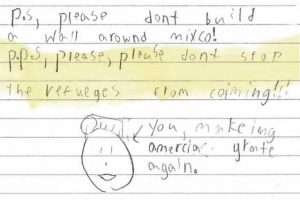 P.S, please dont build
a wall around mixco!
P.P.S, please, please dont stop
the refueges from coiming!!!
You, makeing
amercia grate
again.